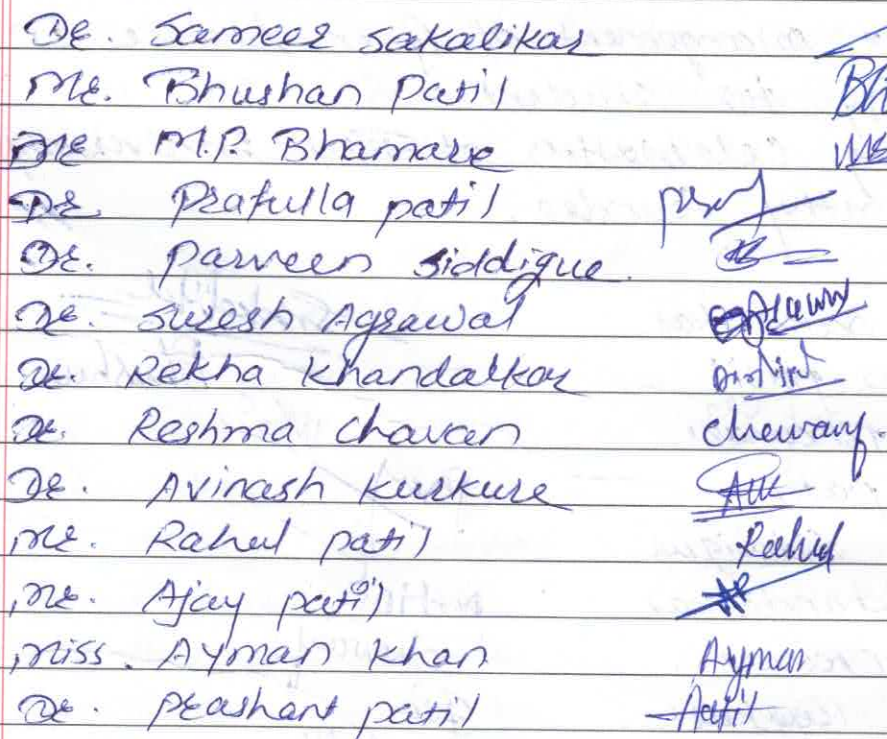 Dr. Sameer Sakalikar
Mr. Bhushan Patil Bh
Mr. M.P. Bhamare
Dr. Prafulla patil
Dr. Parveen Siddique.
Dr. Suresh Agrawal
Dr. Rekha Khandalkar
Dr. Reshma Chavan
Dr. Avinash Kurkure
Mr. Rahul patil Rahul
Mr. Ajay patil
Miss. Ayman Khan Ayman
Dr. Prashant patil